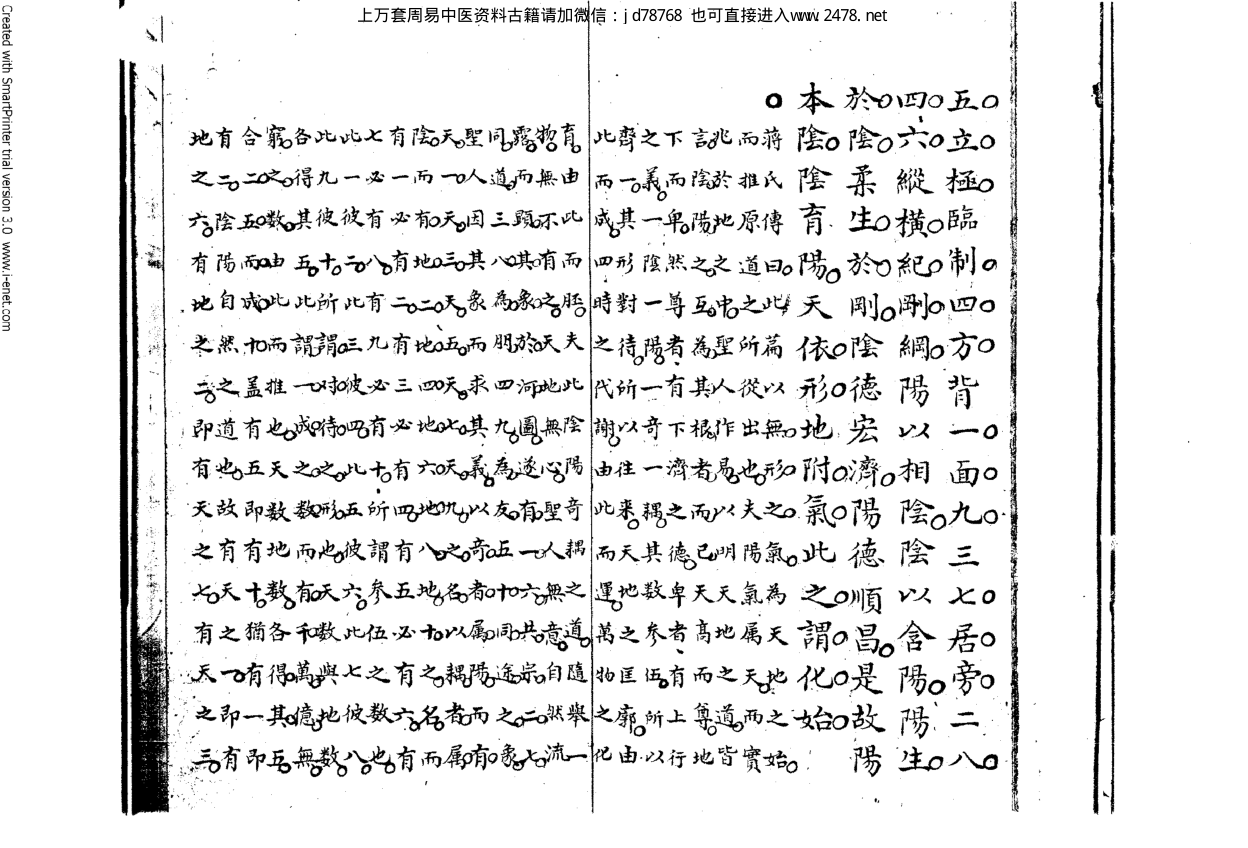 上万套周易中医资料古籍请加微信：jd78768 也可直接进入www.2478.net
五立極臨制四方背一面九三七居旁二八
四六縱橫紀剛綱陽以相陰陰以含陽陽生
於陰柔生於剛陰德宏濟陽德順昌是故陽
本陰陰育陽天依形地附氣此之謂化始
○
蔣氏傳曰此篇以無形之氣為天地之始
而推原道之所從出也夫陽氣属天而實
兆於地之中聖人作易以明天地之道皆
言陰陽之互為其根者而已天高而尊地
下而卑然尊者有下濟之德卑者有上行
之義一陰一陽一奇一耦其数参伍所以
齊一其形對待所以往來天地之匡廓由
此而成四時之代謝由此而運萬物之化
育由此而胚夫此陰陽奇耦之道隨舉一
物無不有之天地無心聖人無意自然流
露而顯其象於河圖遂有一六共宗二七
同道三八為朋四九為友五十同途之象
聖人因其象而求其義以奇者属陽而有
天一天三天五天七天九之名以耦者属
陰而有地二地四地六地八地十之名而
有一必有二有三必有四有五必有六有
七必有八有九必有十所謂参伍之数也
此一彼二此三彼四此五彼六此七彼八
此九彼十所謂对待之形也天数與地数
各得其五此謂一成之数而有千萬億無
窮之数由此而推也天数地数各得其五
合二五而成十盖有五即有十猶有一即
有二陰陽自然之道也故有天之一即有
地之六有地之二即有天之七有天之三
Created with SmartPrinter trial version 3.0 www.i-enet.com